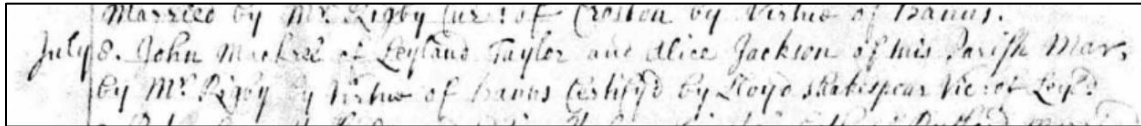 Married by Mr. Rigby Cur: of Croston by Virtue of Banns.
July 8. John Mackrel of Leyland Taylor and Alice Jackson of this Parish Mar.
by Mr. Rigby by Virtue of Banns Certify'd by Lloyd Shakespear Vic: of Leyd: